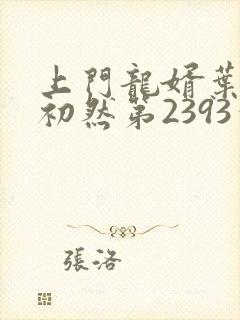 上門龍婿葉
初然第2393
張洛